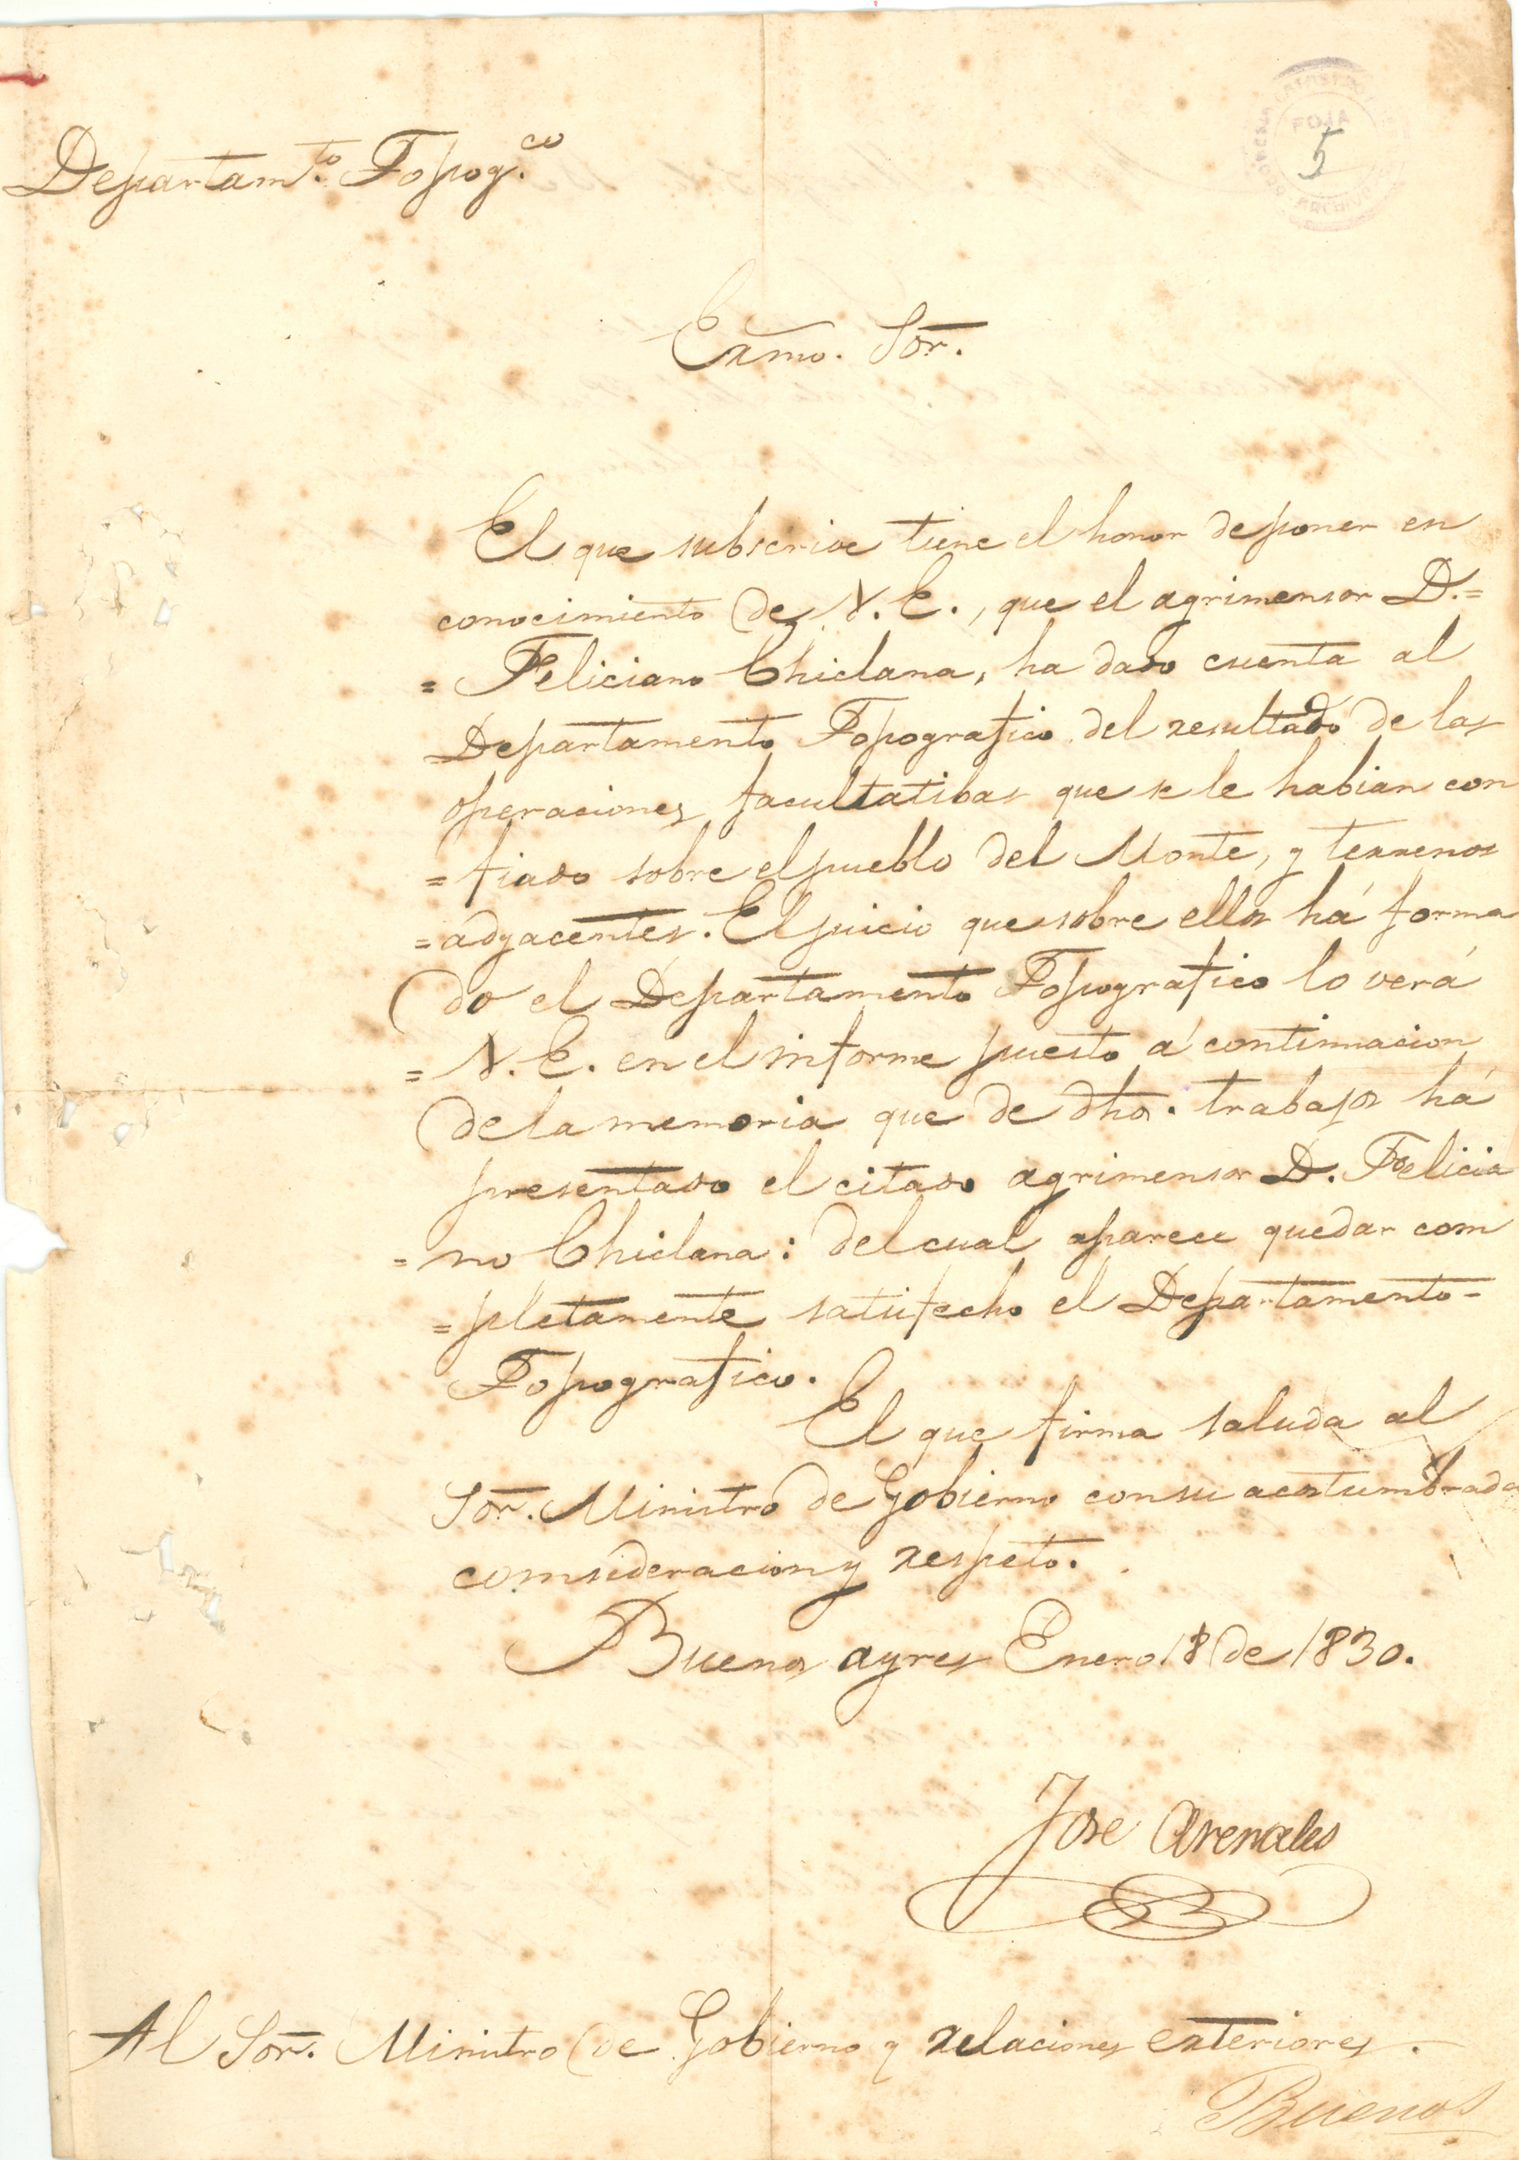 Departam.to Topog.co
FOJA
5
ARCHIVO
Exmo. Sor.
El que subscrive tiene el honor de poner en
conocimiento de V. E., que el agrimensor D.=
= Feliciano Chiclana, ha dado cuenta al
Departamento Topografico del resultado de las
operaciones facultatibas que se le habian con
= fiado sobre el pueblo del Monte, y terrenos
= adyacentes. El juicio que sobre ellos há forma
do el Departamento Topografico lo verá
= V. E. en el informe puesto á continuacion
de la memoria que de dhos. trabajos há
presentado el citado agrimensor D. Felicia
= no Chiclana: del cual aparece quedar com
= pletamente satisfecho el Departamento-
Topografico.
El que firma saluda al
Sor. Ministro de Gobierno con su acostumbrada
comsideracion y respeto.
Buenos ayres Enero 18 de 1830.
Jose Arenales
Al Sor. Ministro de Gobierno y relaciones exteriores.
Buenos